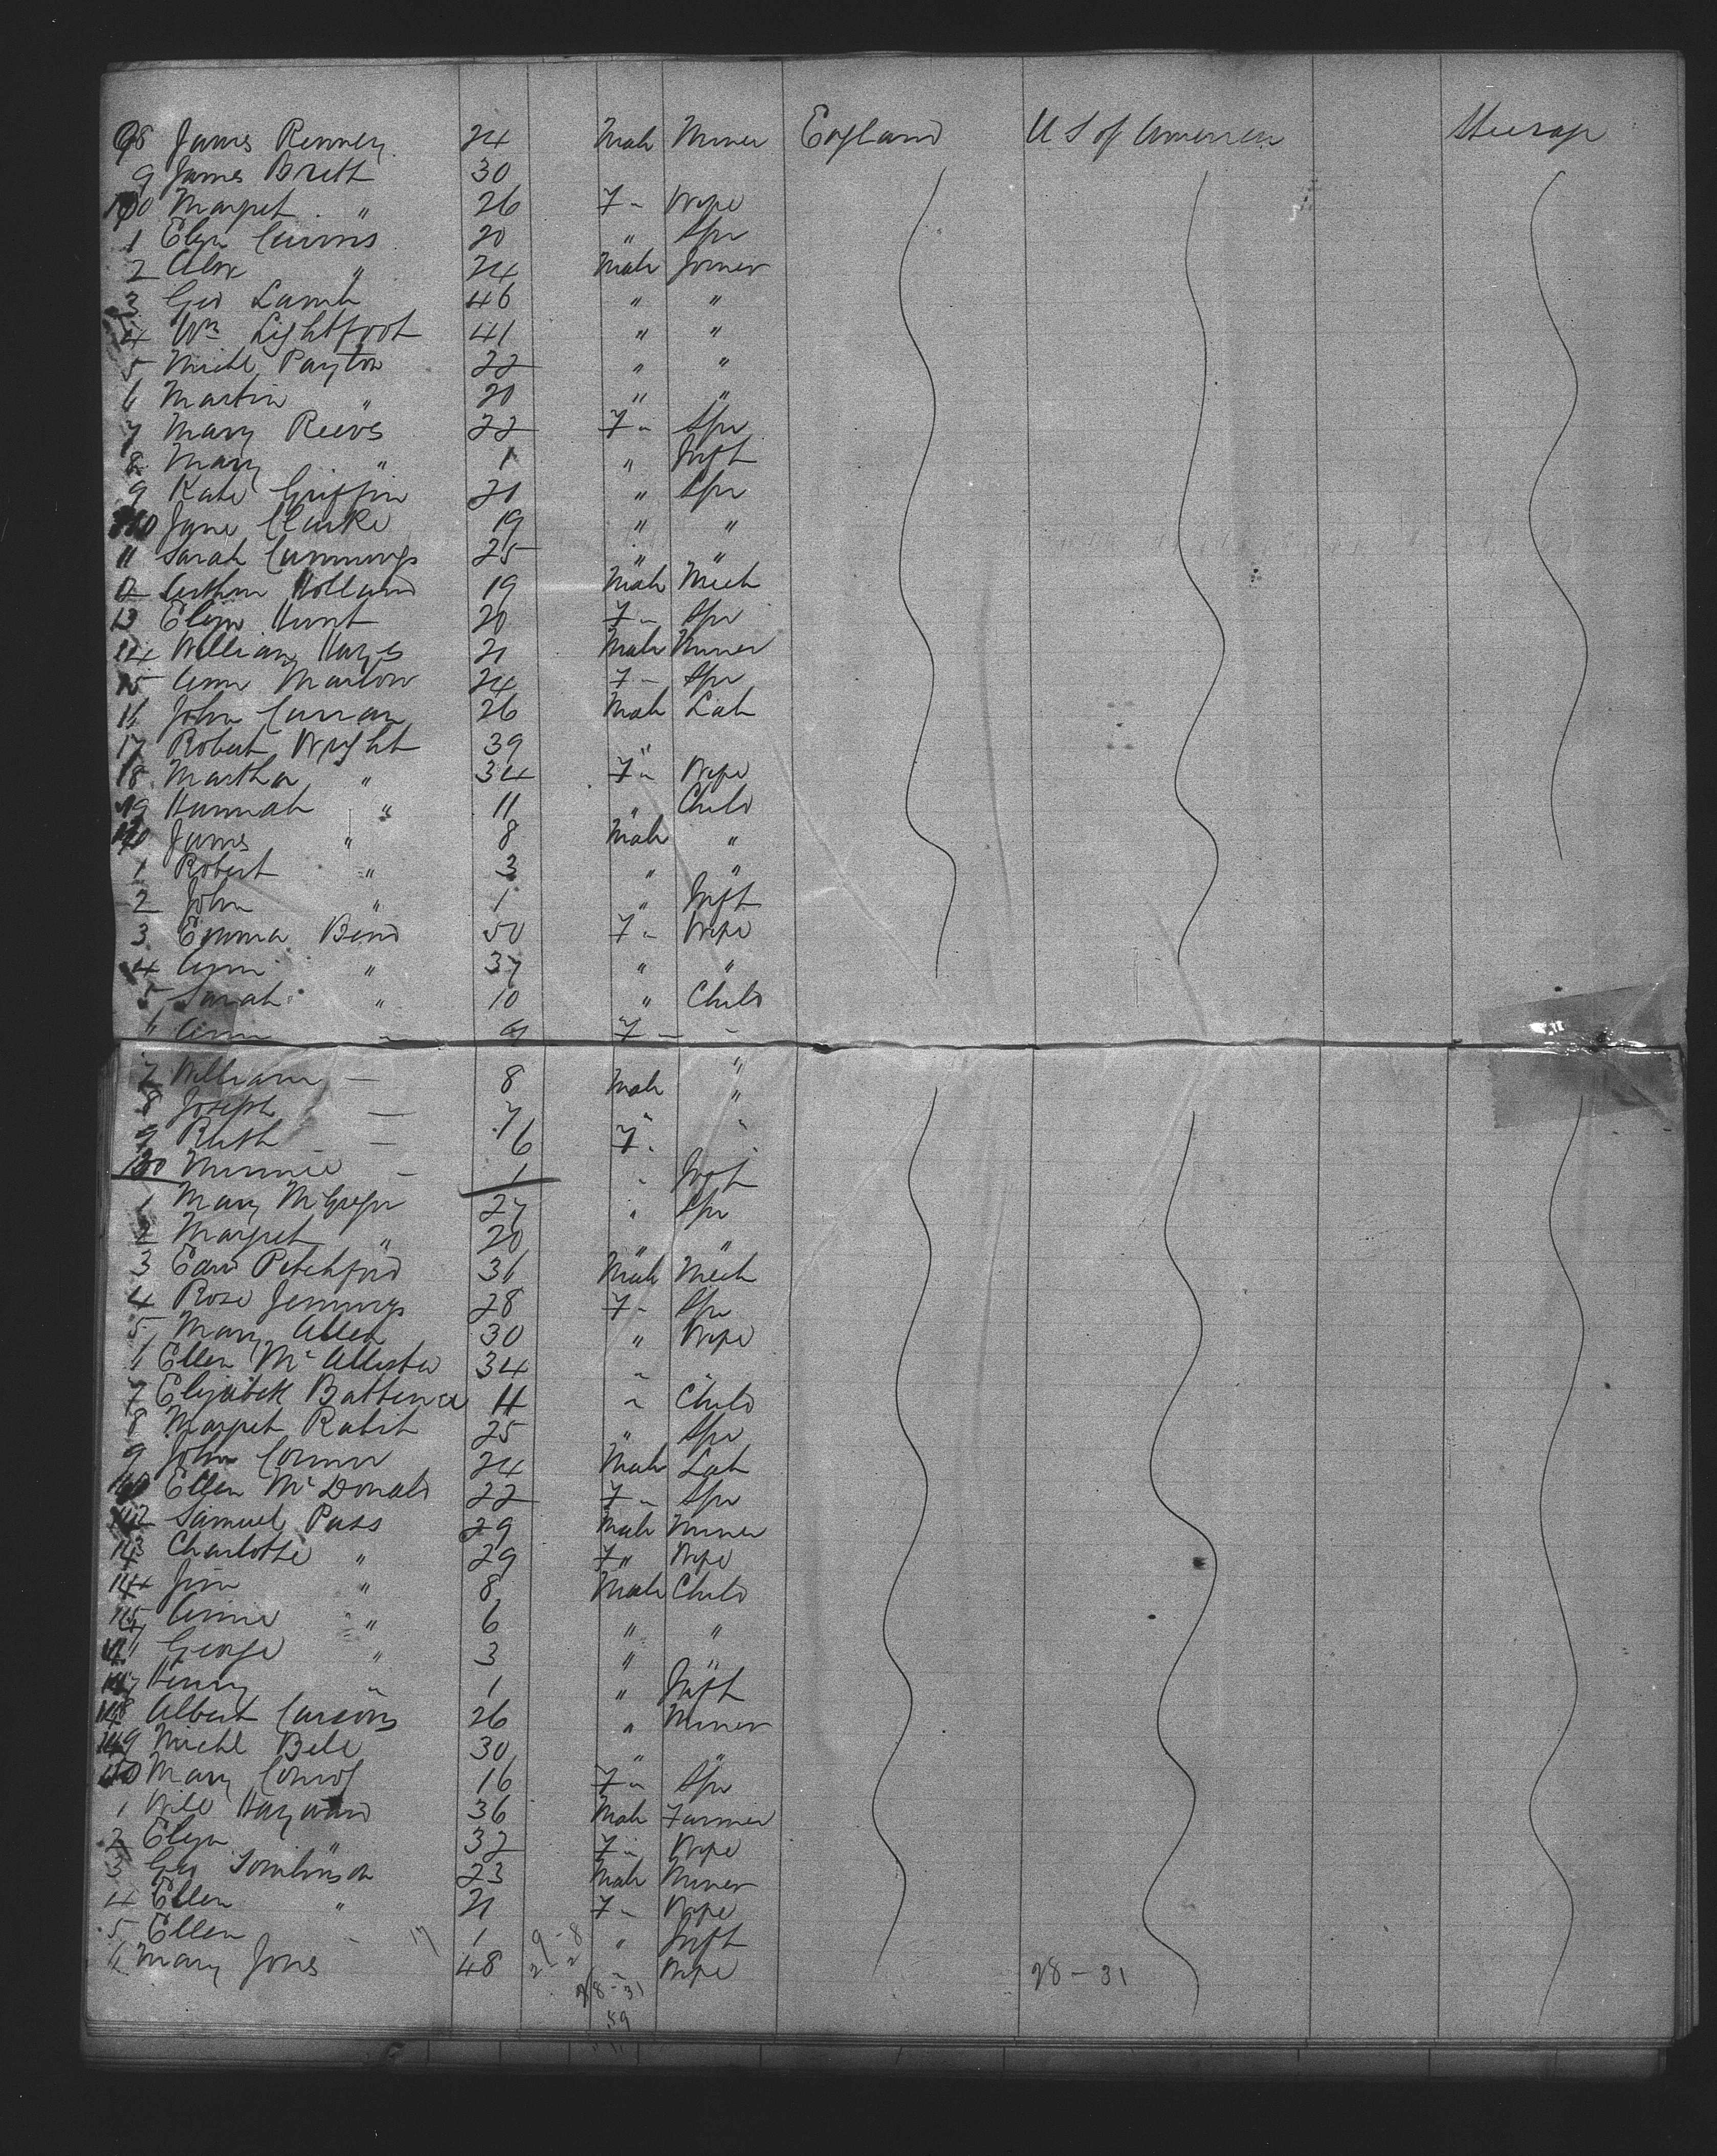 98 James Renney 24 Male Miner England U S of America Steerage
9 James Brett 30
100 Margret " 26 F " Wife
1 Eliza Cairns 20 " Spr
2 Alex " 24 Male Joiner
3 Geo Lamb 46 " "
4 Wm Lightfoot 41 " "
5 Michl Payton 22 " "
6 Martin " 20 " "
7 Mary Reeves 22 F " Spr
8 Mary " 1 " Inft
9 Kate Griffin 20 " Spr
110 Jane Clarke 19 " "
11 Sarah Cummings 25 " "
12 Arthur Holland 19 Male Mech
13 Eliza Hunt 20 F " Spr
14 William Hayes 21 Male Miner
15 Ann Marlow 24 F " Spr
16 John Curran 26 Male Lab
17 Robert Wright 39 "
18 Martha " 34 F " Wife
19 Hannah " 11 " Child
120 James " 8 Male "
1 Robert " 3 " "
2 John " 1 " Inft
3 Emma Bend 50 F " Wife
4 Ann " 37 " "
5 Sarah " 10 " Child
6 Ann " 9 F " "
7 William — 8 Male "
8 Joseph — 7 " "
9 Ruth — 6 F "
130 Minnie - 1 " Inft
1 Mary McGregor 27 " Spr
2 Margret " 20 " "
3 Edwd Pitchford 36 Male Mech
4 Rose Jennings 28 F " Spr
5 Mary Allen 30 " Wife
6 Ellen McAllister 34 "
7 Elizabeth 11 " Child
8 Margret 25 " Spr
9 John Connor 24 Male Lab
140 Ellen McDonald 22 F " Spr
142 Samuel Pass 29 Male Miner
143 Charlotte " 29 F " Wife
144 Jim " 8 Male Child
145 Annie " 6 " "
146 George " 3 " "
147 Henry " 1 " Inft
148 Albert Carsons 26 " Miner
149 Michl Bell 30 " "
150 Mary Conroy 16 F " Spr
1 Will Hayward 36 Male Farmer
2 Eliza " 32 F " Wife
3 Geo Tomlinson 23 Male Miner
4 Ellen " 21 F " Wife
5 Ellen - 1 " Inft
6 Mary Jones 48 " Wife 28-31
28-31
59